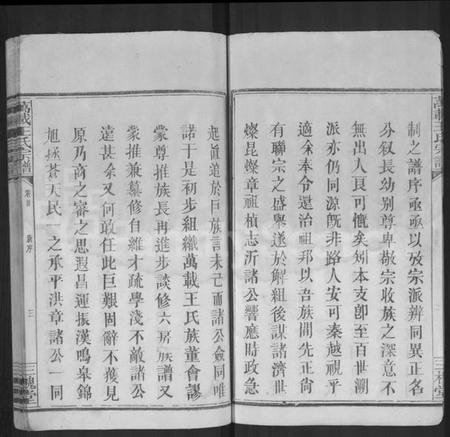 制之譜序亟亟以攷宗派辨同異正名
分叙長幼別尊卑敬宗收族之深意不
無出人良可慨矣矧本支卽至百世溯
派亦仍同源旣非路人安可秦越視乎
適余奉令還治祖邦以吾族間先正尙
有聯宗之盛舉遂於解組後謀諸濟世
燦昆燦章祖楨志沂諸公響應時政急
起直追於巨族言未亡而諸公僉同唯
諾于是初步組織萬載王氏族董會謬
蒙尊推族長再進步談修六房族譜又
蒙推兼纂修自維才疏學淺不敵諸公
遠甚余又何敢任此巨艱固辭不獲見
原乃商之審之思遐昌運振漢鳴皋錦
旭拯蒼天民一之承平洪章諸公一同
萬載王氏宗譜
卷首
新序
三
三槐堂